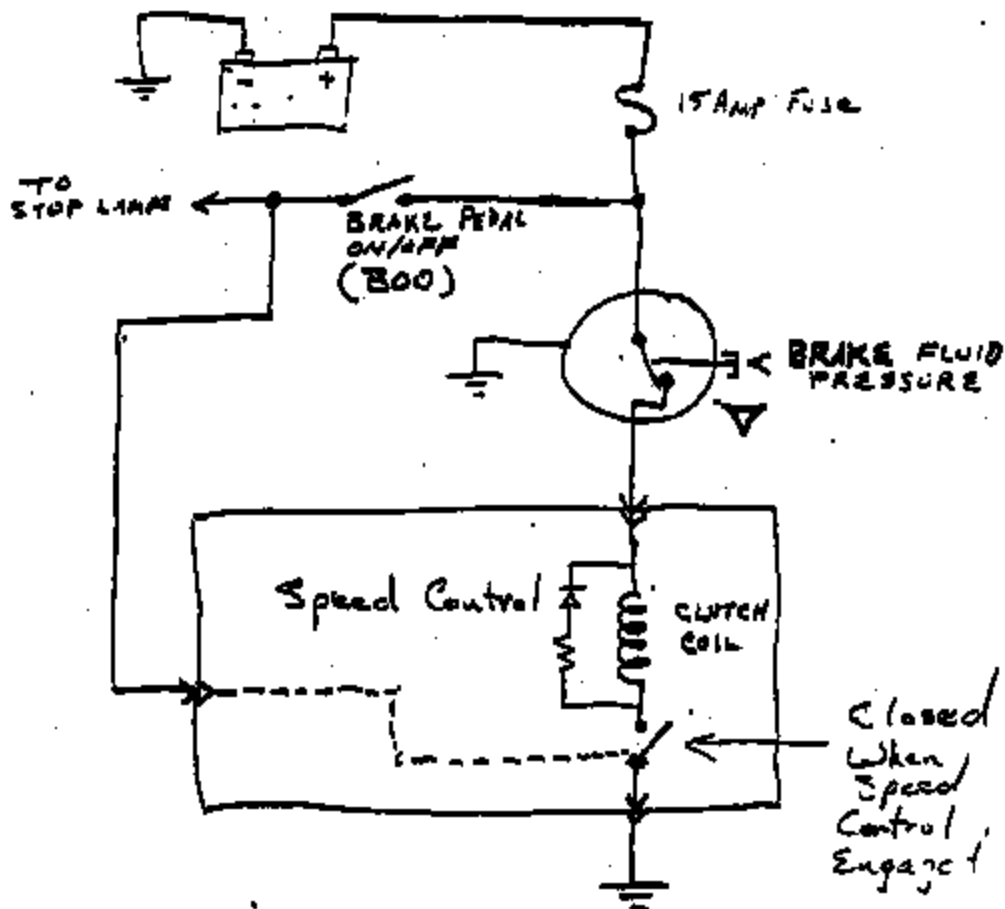 - +
15 AMP FUSE
TO
STOP LAMPS
BRAKE PEDAL
ON/OFF
(BOO)
BRAKE FLUID
PRESSURE
Speed Control
CLUTCH
COIL
Closed
When
Speed
Control